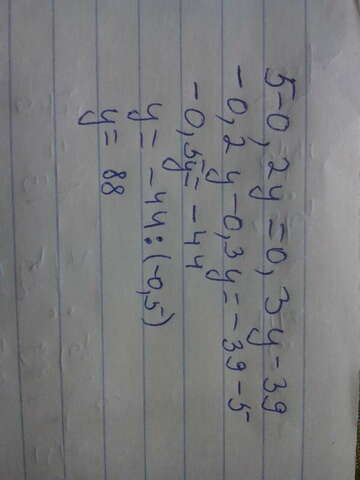 5-0,2y=0,3y-39
-0,2y-0,3y=-39-5
-0,5y=-44
y=-44:(-0,5)
y=88